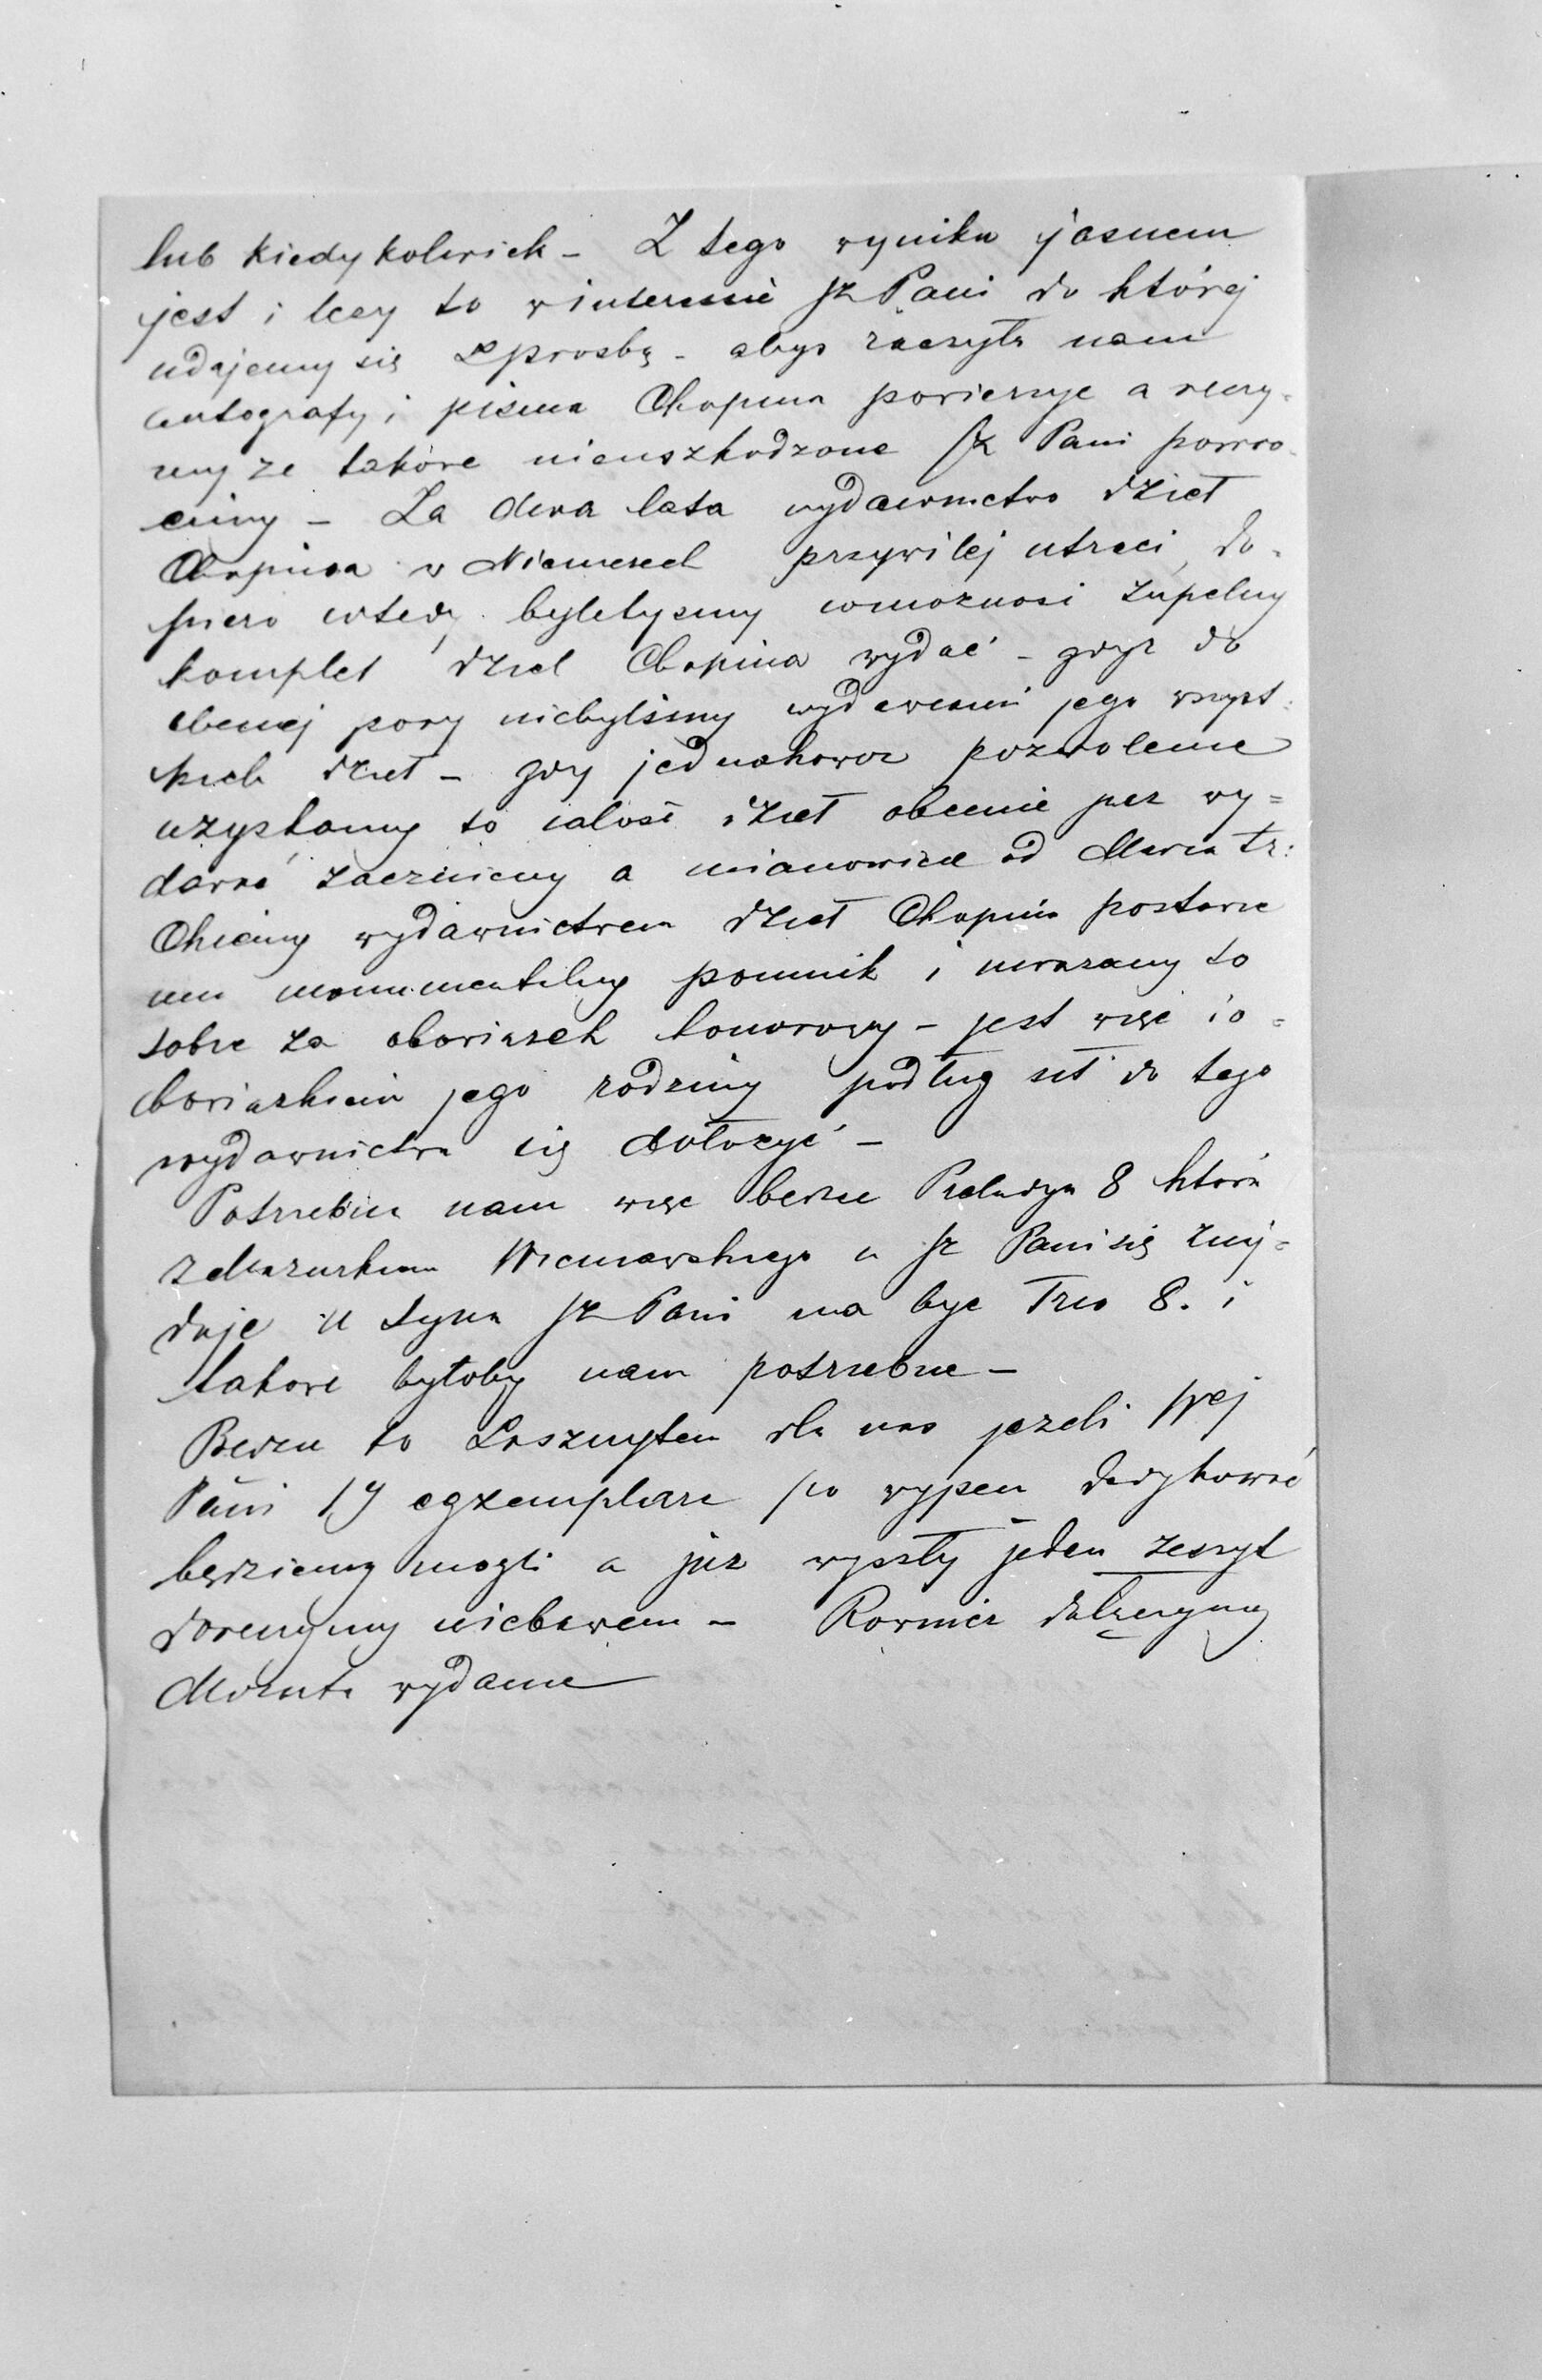 lub kiedykolwiek – Z tego wyniku jasnem
jest i leży to w interesie Sz Pani do której
udajemy się z prośbą – abyś raczyła nam
autografy i pisma Chopina powierzyc a ręczy-
my ze takowe nieuszkodzone Sz Pani powró-
cimy – Za dwa lata wydawnictwo dzieł
Chopina w Niemczech przywilej utraci, do-
piero wtedy bylibysmy w możnosi zupelny
komplet dziel Chopina wydać – gdyz do
obecnej pory niebyliśmy wydawcami jego wszyst-
kich dzieł – gdy jednakowoz pozwolenie
uzyskamy to calość dzieł obecnie juz wy=
dawać zaczniemy a mianowicie od Marca tr:
Chcemy wydawnictwem dzieł Chopina postawic
mu monumentalny pomnik i uwazamy to
sobie za obowiazek honorowy – jest więc i o=
bowiazkiem jego rodziny podług sił do tego
wydawnictwa się dołozyć –
Potrzebna nam więc bedzie Preludya 8 która
z Mazurkiem Wieniawskiego u Sz Pani się znaj=
duje u Syna Sz Pani ma byc Trio 8. i
takowe byłoby nam potrzebne –
Bedzie to Zaszczytem dla nas jezeli Wej
Pani 1y egzemplarz po wyjsciu dedykować
będziemy mogli a juz wyszły jeden zeszyt
doręczymy niebawem – Rowniez dołączymy
Mozarta wydanie